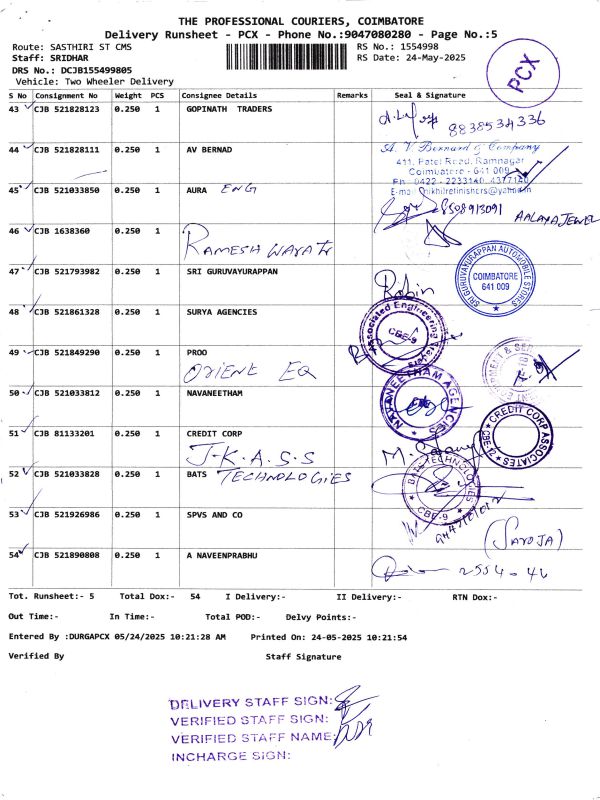 THE PROFESSIONAL COURIERS, COIMBATORE
Delivery Runsheet - PCX - Phone No.:9047080280 - Page No.:5
Route: SASTHIRI ST CMS
RS No.: 1554998
Staff: SRIDHAR
RS Date: 24-May-2025
DRS No.: DCJB155499805
Vehicle: Two Wheeler Delivery
PCX
S No Consignment No Weight PCS Consignee Details Remarks Seal & Signature
43 CJB 521828123 0.250 1 GOPINATH TRADERS
8838534336
44 CJB 521828111 0.250 1 AV BERNAD
A. V. Bernard & Company
411, Patel Road, Ramnagar
Coimbatore - 641 009
Ph : 0422 - 2233140, 4377140
45 CJB 521033850 0.250 1 AURA ENG
8508913091 AALAYA JEWEL
46 CJB 1638360 0.250 1
RAMESH
47 CJB 521793982 0.250 1 SRI GURUVAYURAPPAN
Robin
SRI GURUVAYURAPPAN AUTOMOBILE STORES
COIMBATORE
641 009
48 CJB 521861328 0.250 1 SURYA AGENCIES
Associated Engineering
CBE-9
49 CJB 521849290 0.250 1 PROO
ORIENT EQ
50 CJB 521033812 0.250 1 NAVANEETHAM
NAVANEETHAM AGENCIES
51 CJB 81133201 0.250 1 CREDIT CORP
J.K.A.S.S
CREDIT CORP ASSOCIATES
CBE-12
52 CJB 521033828 0.250 1 BATS TECHNOLOGIES
BATS TECHNOLOGIES
CBE-9
53 CJB 521926986 0.250 1 SPVS AND CO
(SAROJA)
54 CJB 521890808 0.250 1 A NAVEENPRABHU
Tot. Runsheet:- 5 Total Dox:- 54 I Delivery:- II Delivery:- RTN Dox:-
Out Time:- In Time:- Total POD:- Delvy Points:-
Entered By :DURGAPCX 05/24/2025 10:21:28 AM Printed On: 24-05-2025 10:21:54
Verified By Staff Signature
DELIVERY STAFF SIGN:
VERIFIED STAFF SIGN:
VERIFIED STAFF NAME:
INCHARGE SIGN: